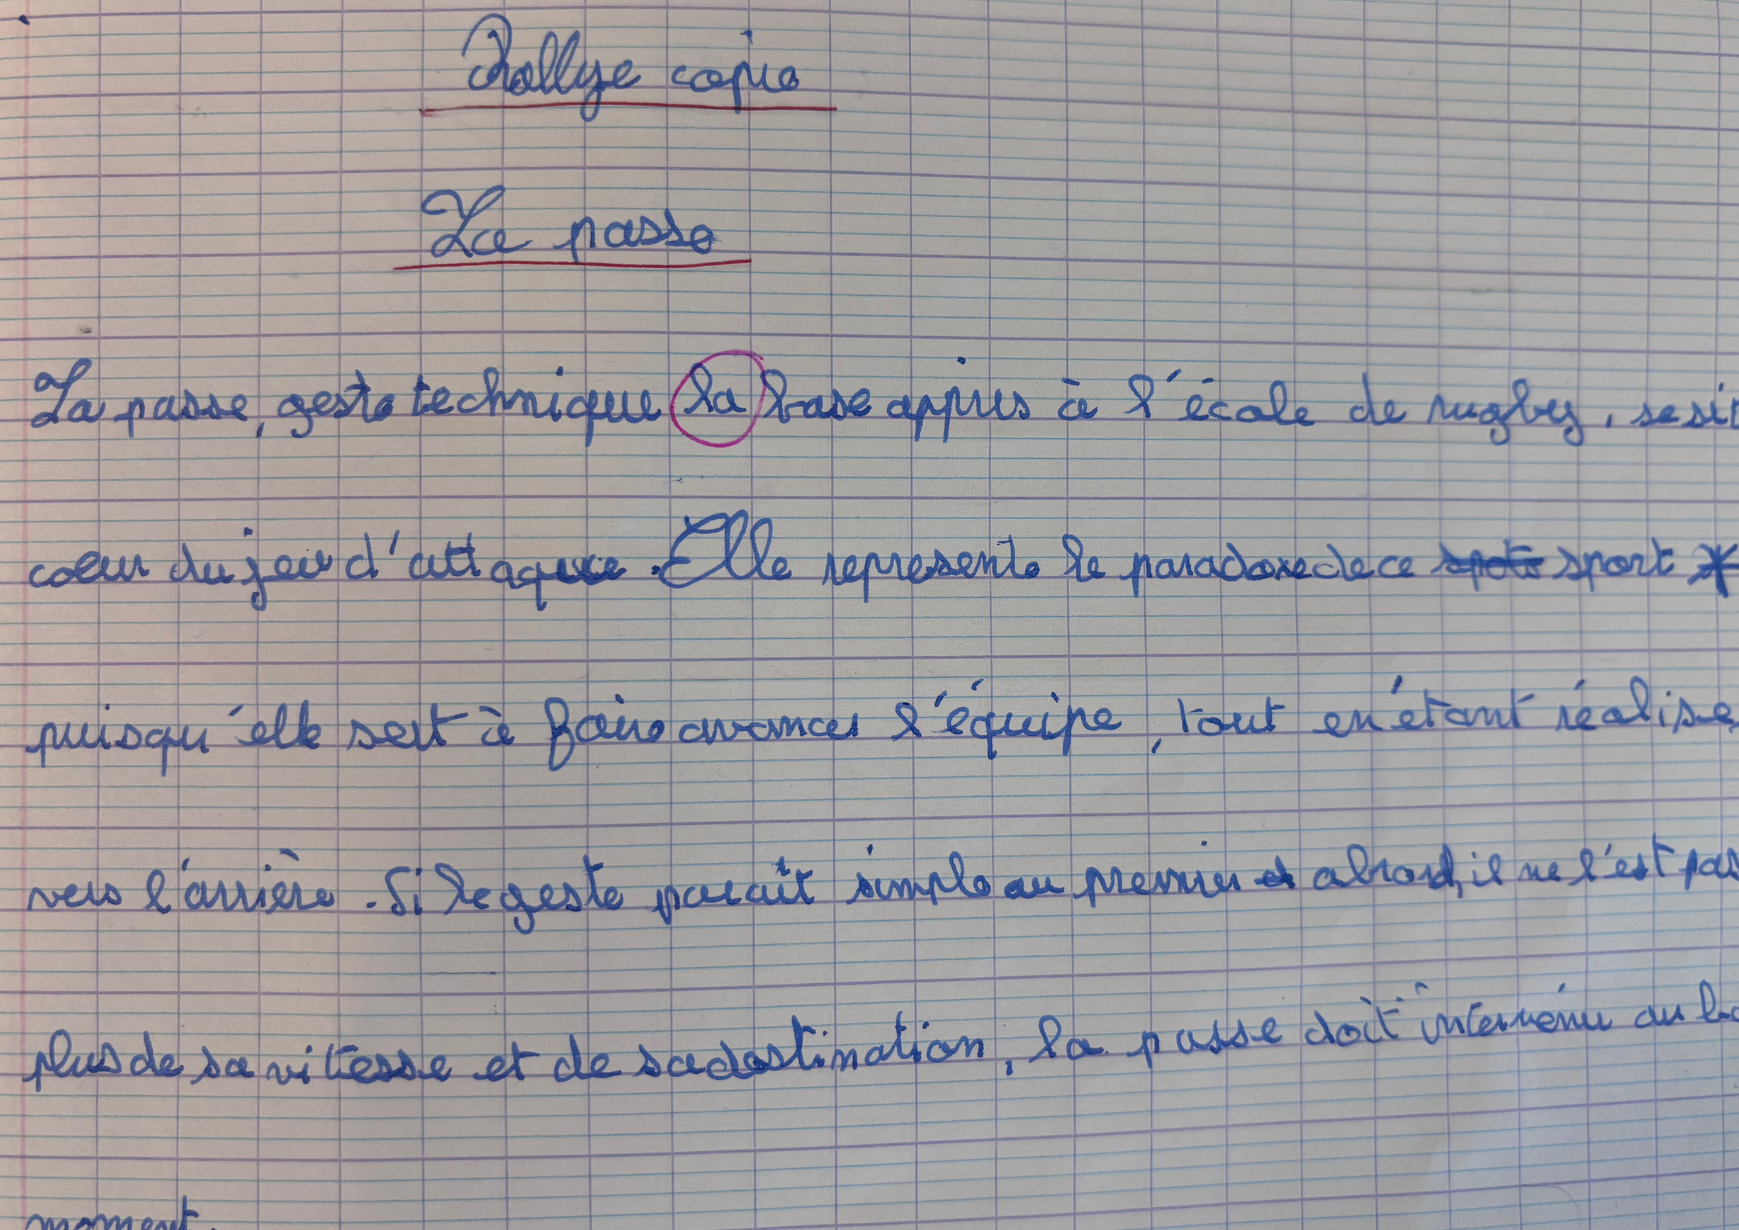 Rallye copie
La passe
La passe, geste technique la base appris à l'école de rugby, se sit
cœur du jeu d'attaque. Elle represente le paradoxe de ce sport
puisqu'elle sert à faire avancer l'équipe, tout en étant réalise
vers l'arrière. Si le geste paraît simple au premier abord, il ne l'est pas
plus de sa vitesse et de sa destination, la passe doit intervenir au bo
moment.